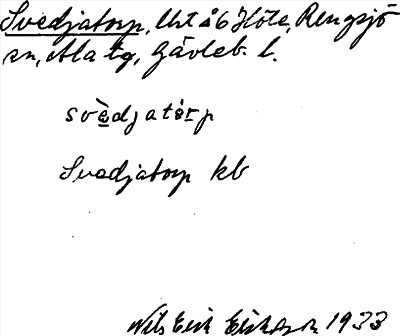 Svedjatorp, Uht å 6 Höle, Rengsjö
sn, Ala tg, Gävleb. l.
svèdjatårp
Svedjatorp kb
Nils Erik Eriksson 1933